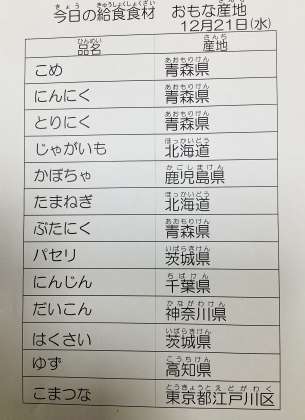 今日の給食食材 おもな産地
12月21日(水)
品名 産地
こめ 青森県
にんにく 青森県
とりにく 青森県
じゃがいも 北海道
かぼちゃ 鹿児島県
たまねぎ 北海道
ぶたにく 青森県
パセリ 茨城県
にんじん 千葉県
だいこん 神奈川県
はくさい 茨城県
ゆず 高知県
こまつな 東京都江戸川区